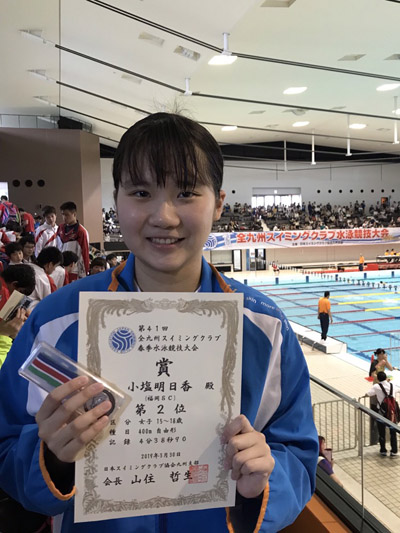 全九州スイミングクラブ水泳競技大会
第41回
全九州スイミングクラブ
春季水泳競技大会
賞
小塩明日香 殿
(福岡SC)
第2位
区分 女子 15～18歳
種目 400m 自由形
記録 4分38秒90
2019年3月30日
日本スイミングクラブ協会九州支部
会長 山住 哲生